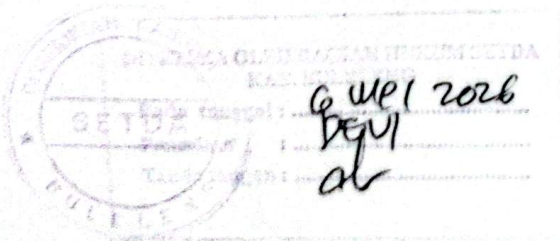 DITERIMA OLEH BAGIAN HUKUM SETDA
KAB. BULELENG
SETDA
Pada tanggal : 6 Mei 2026
: DEWI
Tanda tangan :
BULELENG